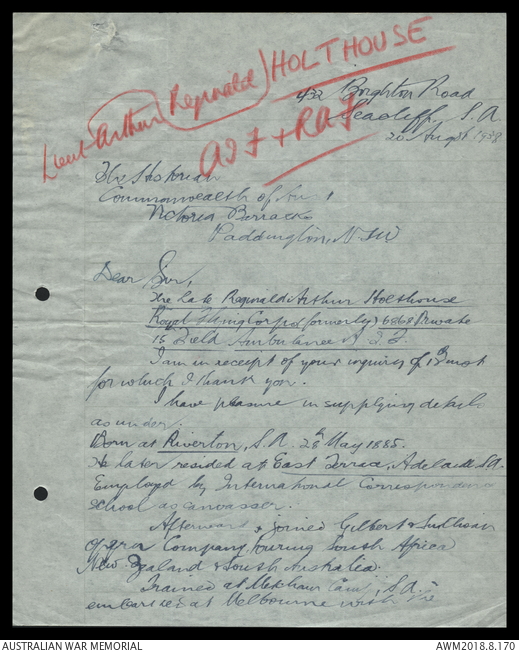 Lieut Arthur Reginald HOLTHOUSE
AIF + RAF
432 Brighton Road
Seacliff, S.A.
20 August 1938
The Historian
Commonwealth of Au
Victoria Barracks
Paddington N.S.W
Dear Sir,
The late Reginald Arthur Holthouse
Royal Flying Corps (formerly) 6868 Private
15 Field Ambulance A.I.F.
I am in receipt of your inquiry of inst
for which I thank you.
I have pleasure in supplying details
as under.
Born at Riverton, S.A. 28th May 1885.
He later resided at East Terrace, Adelaide S.A.
Employed by International Correspondence
School as canvasser.
Afterward & joined Gilbert & Sullivan
Opera Company touring South Africa
New Zealand & South Australia.
Trained at Mitcham Camp, S.A.
embarked at Melbourne with the
AUSTRALIAN WAR MEMORIAL
AWM2018.8.170